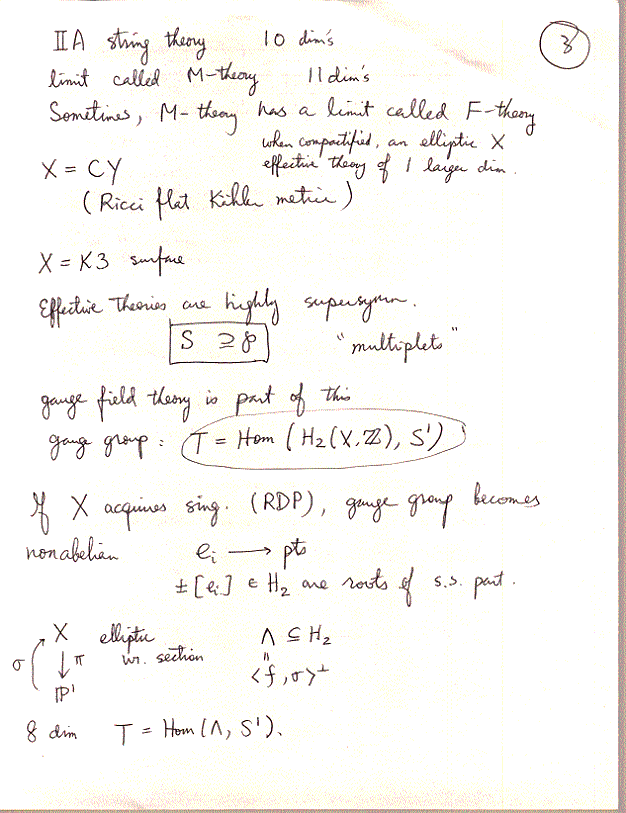 IIA string theory 10 dim's
3
limit called M-theory 11 dim's
Sometimes, M-theory has a limit called F-theory
when compactified, an elliptic X
effective theory of 1 larger dim.
X = CY
(Ricci flat Kähler metric)
X = K3 surface
Effective Theories are highly supersymm.
S ⊇ ℘
"multiplets"
gauge field theory is part of this
gauge group: T = Hom (H₂(X,ℤ), S¹)
If X acquires sing. (RDP), gauge group becomes
nonabelian eᵢ ⟶ pts
±[eᵢ] ∈ H₂ are roots of s.s. part.
X elliptic Λ ⊆ H₂
σ ↓ π w. section "
ℙ¹ <f,σ>^⊥
8 dim T = Hom(Λ, S¹).